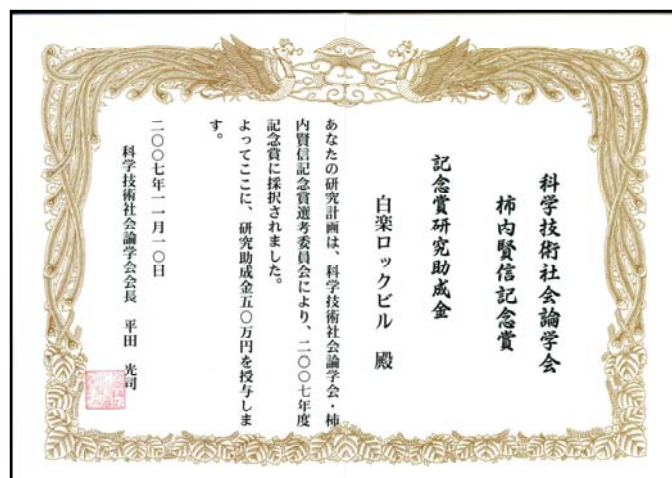 科学技術社会論学会
柿内賢信記念賞
記念賞研究助成金
白楽ロックビル　殿
あなたの研究計画は、科学技術社会論学会・柿
内賢信記念賞選考委員会により、二〇〇七年度
記念賞に採択されました。
よってここに、研究助成金五〇万円を授与しま
す。
二〇〇七年一一月一〇日
科学技術社会論学会会長　平田　光司